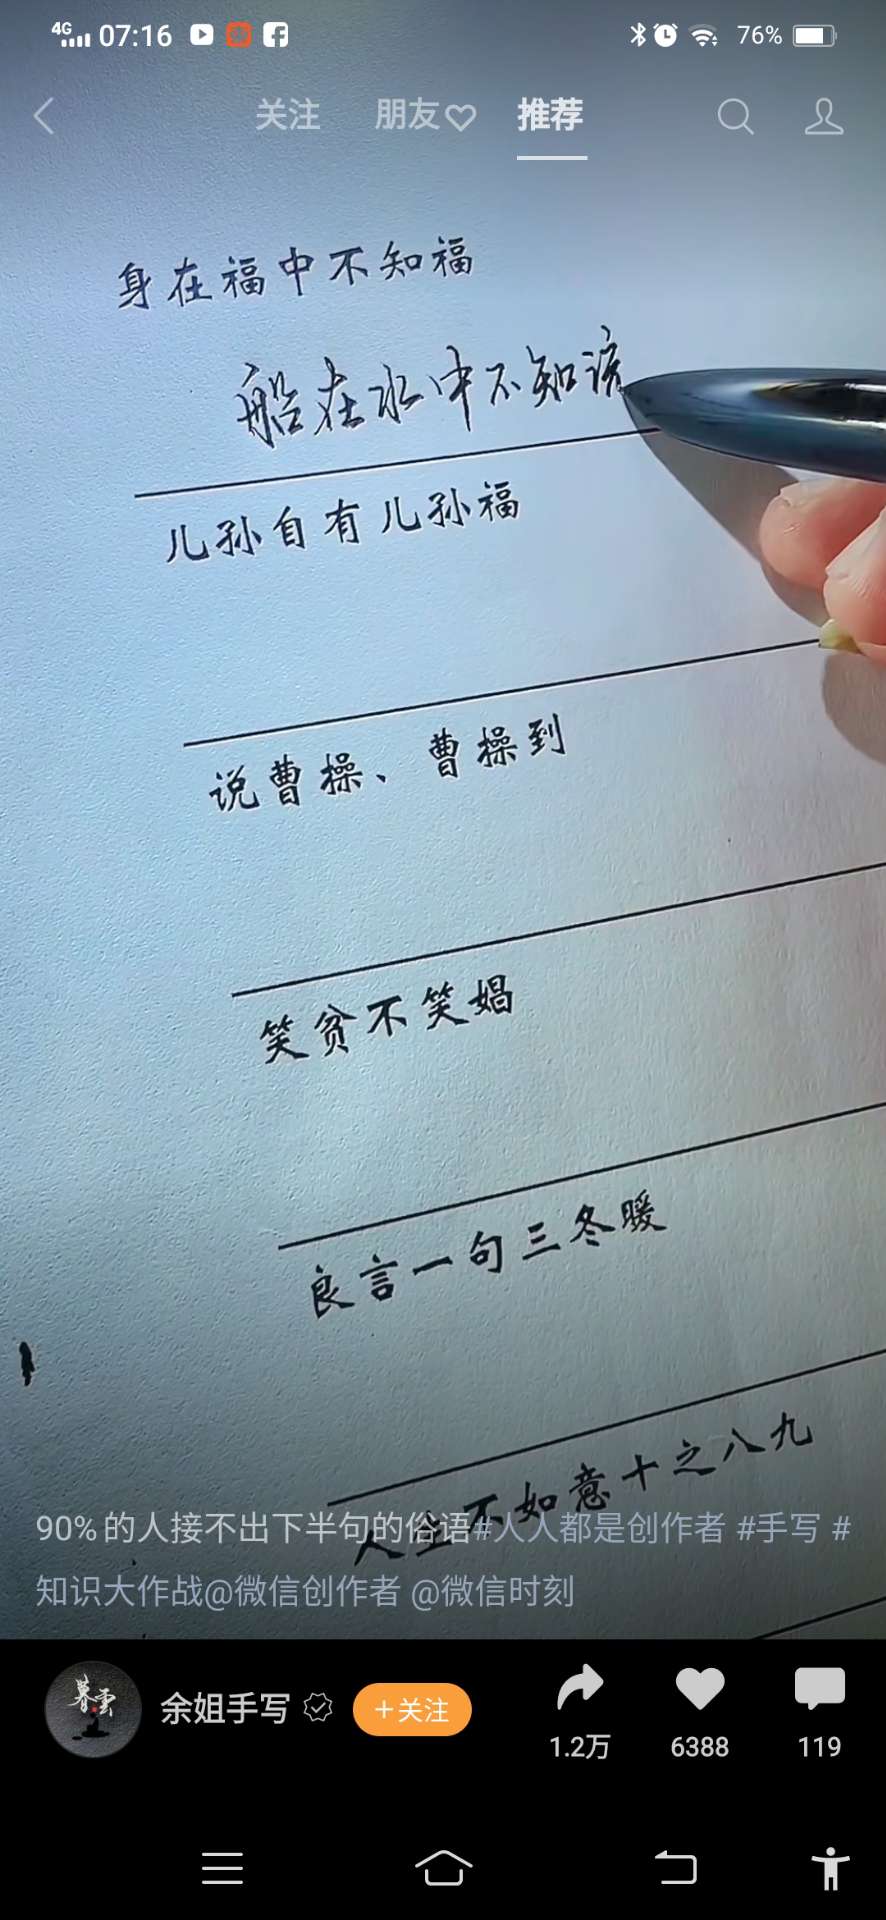 4G 07:16 76%
关注 朋友 推荐
身在福中不知福
船在水中不知
儿孙自有儿孙福
说曹操、曹操到
笑贫不笑娼
良言一句三冬暖
人生不如意十之八九
90%的人接不出下半句的俗语#人人都是创作者 #手写 #
知识大作战@微信创作者 @微信时刻
余姐手写 +关注
1.2万 6388 119